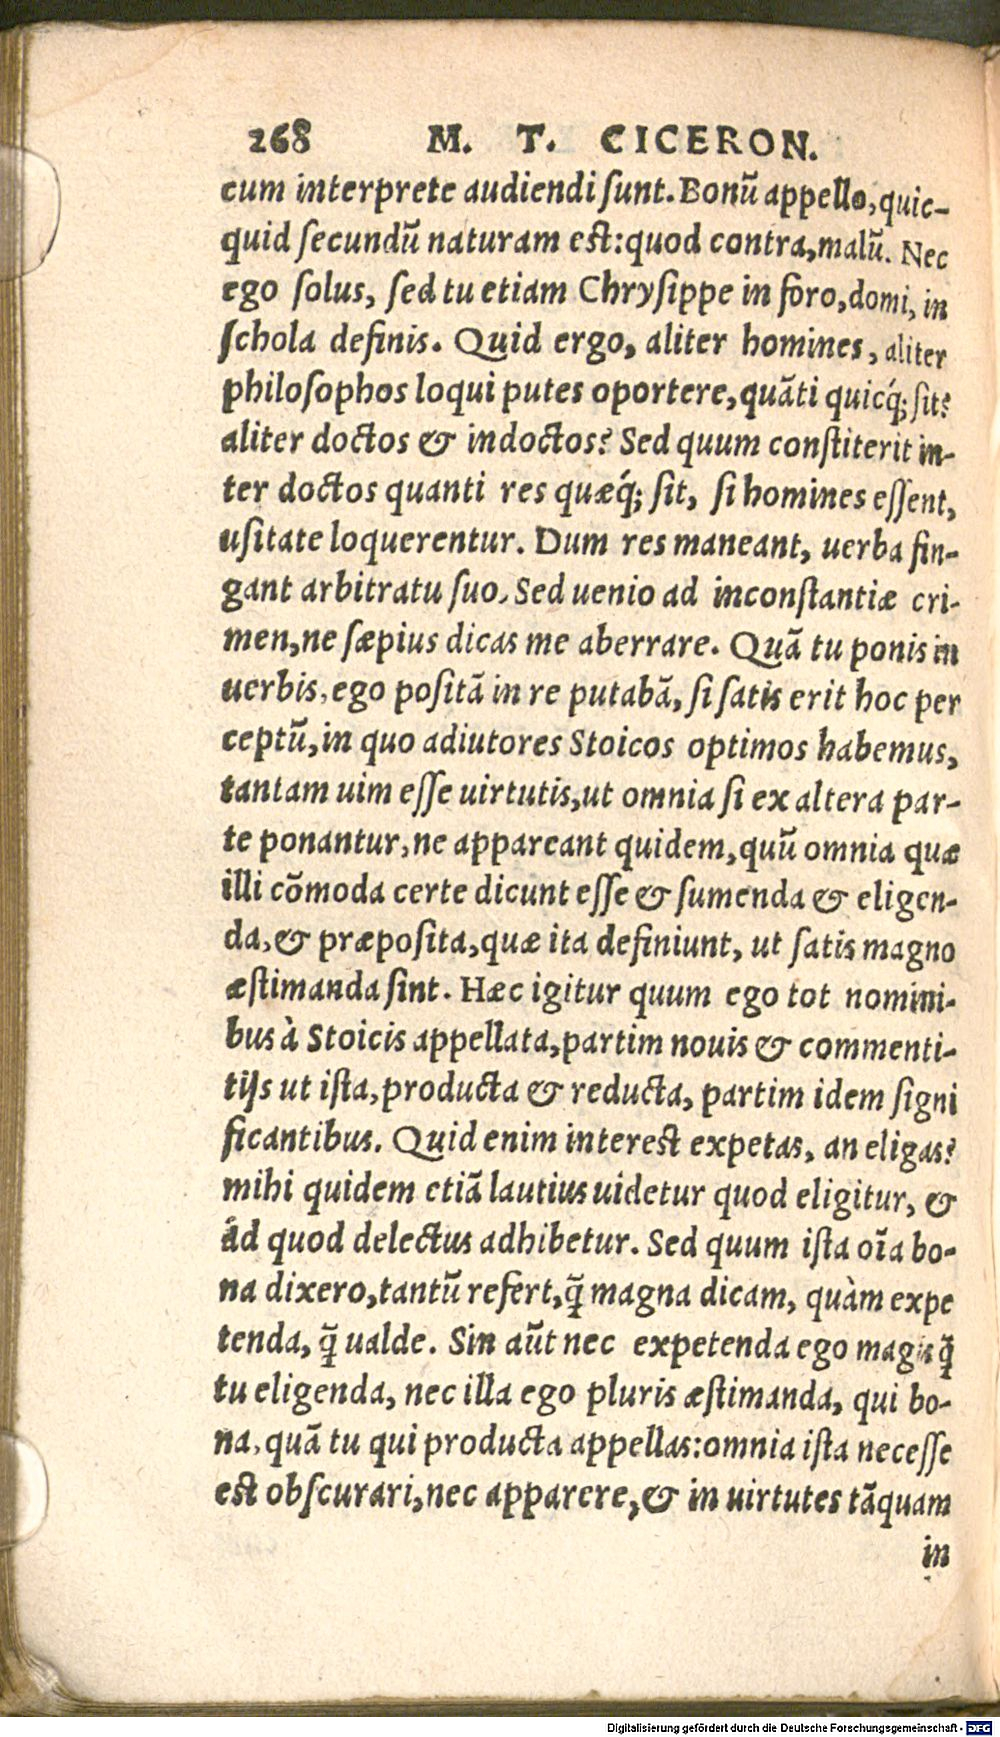 268 M. T. CICERON.
cum interprete audiendi sunt. Bonũ appello, quic-
quid secundũ naturam est: quod contra, malũ. Nec
ego solus, sed tu etiam Chrysippe in foro, domi, in
schola definis. Quid ergo, aliter homines, aliter
philosophos loqui putes oportere, quãti quicq́; sit?
aliter doctos & indoctos? Sed quum constiterit in-
ter doctos quanti res quæq́; sit, si homines essent,
usitate loquerentur. Dum res maneant, uerba fin-
gant arbitratu suo. Sed uenio ad inconstantiæ cri-
men, ne sæpius dicas me aberrare. Quã tu ponis in
uerbis, ego positã in re putabã, si satis erit hoc per
ceptũ, in quo adiutores Stoicos optimos habemus,
tantam uim esse uirtutis, ut omnia si ex altera par-
te ponantur, ne appareant quidem, quũ omnia quæ
illi cõmoda certe dicunt esse & sumenda & eligen-
da, & præposita, quæ ita definiunt, ut satis magno
æstimanda sint. Hæc igitur quum ego tot nomini-
bus à Stoicis appellata, partim nouis & commenti-
tijs ut ista, producta & reducta, partim idem signi
ficantibus. Quid enim interest expetas, an eligas?
mihi quidem etiã lautius uidetur quod eligitur, &
ád quod delectus adhibetur. Sed quum ista oĩa bo-
na dixero, tantũ refert, q̃ magna dicam, quàm expe
tenda, q̃ ualde. Sin aũt nec expetenda ego magis q̃
tu eligenda, nec illa ego pluris æstimanda, qui bo-
na, quã tu qui producta appellas: omnia ista necesse
est obscurari, nec apparere, & in uirtutes tãquam
in
Digitalisierung gefördert durch die Deutsche Forschungsgemeinschaft - DFG